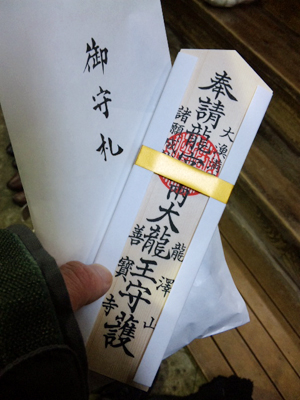 御守札
大漁
奉請龍 大龍王守護
諸願
龍澤山
善寳寺